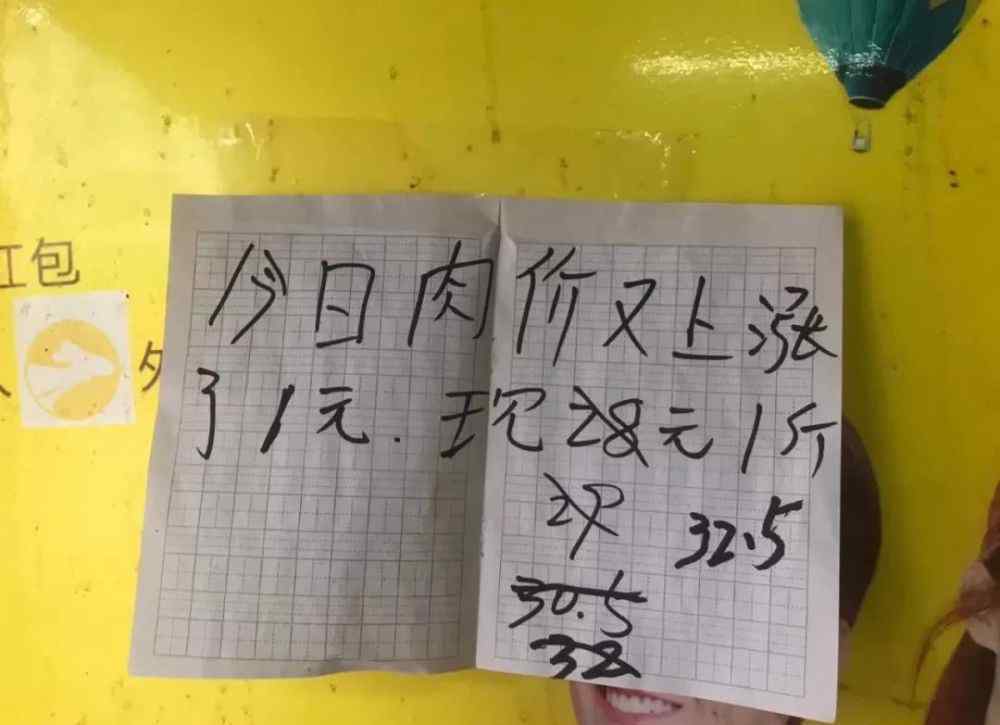 红包
今日肉价又上涨
了1元.现28元1斤
29 32.5
30.5
32